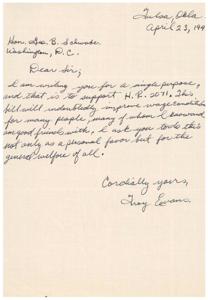 Tulsa, Okla.
April 23, 194
Hon. Geo. B. Schwabe
Washington, D.C.
Dear Sir;
I am writing you for a single purpose,
and that is to support H.R. 2071. This
bill will undoubtedly improve wage conditions
for many people, many of whom I know and
am good friends with. I ask you to do this
not only as a personal favor but for the
general welfare of all.
Cordially yours,
Troy Evans.